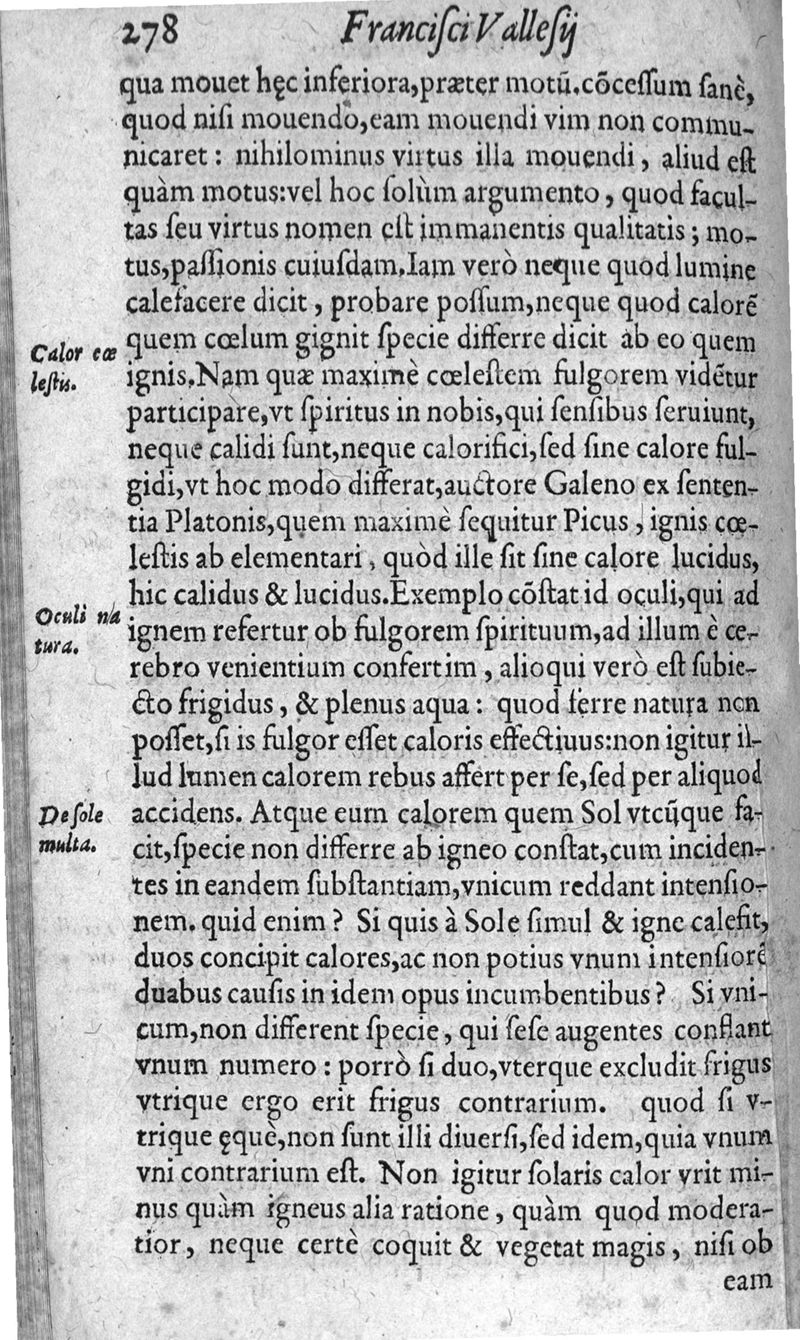 278 Franciſci Valleſij
qua mouet hęc inferiora,præter motū.cōceſſum ſanè,
quod niſi mouendo,eam mouendi vim non commu-
nicaret: nihilominus virtus illa mouendi, aliud eſt
quàm motus:vel hoc ſolùm argumento, quod facul-
tas ſeu virtus nomen eſt immanentis qualitatis; mo-
tus,paſſionis cuiuſdam.Iam verò neque quod lumine
calefacere dicit, probare poſſum,neque quod calorē
quem cœlum gignit ſpecie differre dicit ab eo quem
Calor cœ
leſtis.
ignis.Nam quæ maximè cœleſtem fulgorem vidētur
participare,vt ſpiritus in nobis,qui ſenſibus ſeruiunt,
neque calidi ſunt,neque calorifici,ſed ſine calore ful-
gidi,vt hoc modo differat,auctore Galeno ex ſenten-
tia Platonis,quem maximè ſequitur Picus, ignis cœ-
leſtis ab elementari, quòd ille ſit ſine calore lucidus,
hic calidus & lucidus.Exemplo cōſtat id oculi,qui ad
Oculi na
tura.
ignem refertur ob fulgorem ſpirituum,ad illum è ce-
rebro venientium confertim, alioqui verò eſt ſubie-
cto frigidus, & plenus aqua: quod ferre natura non
poſſet,ſi is fulgor eſſet caloris effectiuus:non igitur il-
lud lumen calorem rebus affert per ſe,ſed per aliquod
De ſole
multa.
accidens. Atque eum calorem quem Sol vtcūque fa-
cit,ſpecie non differre ab igneo conſtat,cum inciden-
tes in eandem ſubſtantiam,vnicum reddant intenſio-
nem. quid enim? Si quis à Sole ſimul & igne calefit,
duos concipit calores,ac non potius vnum intenſiorē
duabus cauſis in idem opus incumbentibus? Si vni-
cum,non different ſpecie, qui ſeſe augentes conflant
vnum numero: porrò ſi duo,vterque excludit frigus
vtrique ergo erit frigus contrarium. quod ſi v-
trique ęquè,non ſunt illi diuerſi,ſed idem,quia vnum
vni contrarium eſt. Non igitur ſolaris calor vrit mi-
nus quàm igneus alia ratione, quàm quod modera-
tior, neque certè coquit & vegetat magis, niſi ob
eam